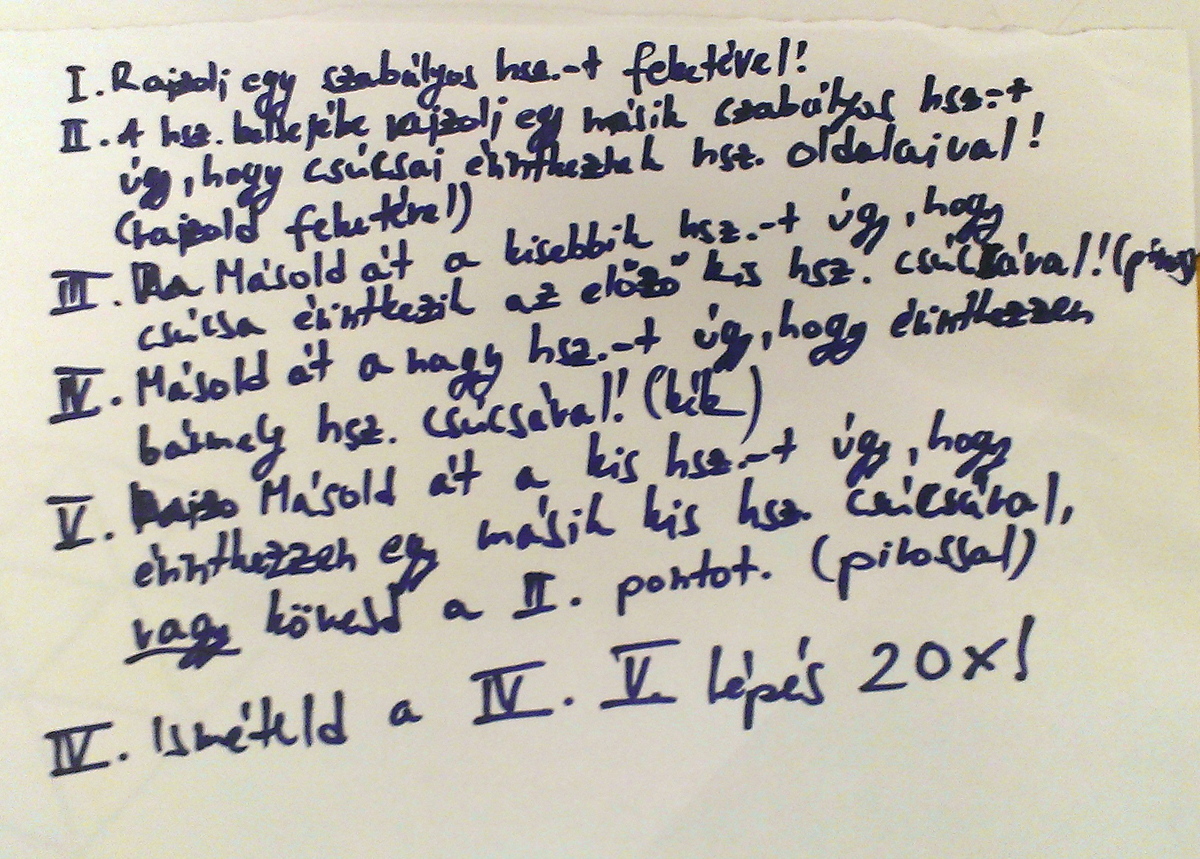 I. Rajzolj egy szabályos hsz.-t feketével!
II. A hsz. belsejébe rajzolj egy másik szabályos hsz.-t
úgy, hogy csúcsai érintkeznek hsz. oldalaival!
(rajzold feketével)
III. Másold át a kisebbik hsz.-t úgy, hogy
csúcsa érintkezik az előző kis hsz. csúcsával! (piros)
IV. Másold át a nagy hsz.-t úgy, hogy érintkezzen
bármely hsz. csúcsával! (kék)
V. Másold át a kis hsz.-t úgy, hogy
érintkezzen egy másik kis hsz. csúcsával,
vagy kövesd a II. pontot. (pirossal)
IV. Ismételd a IV. V. lépés 20x!